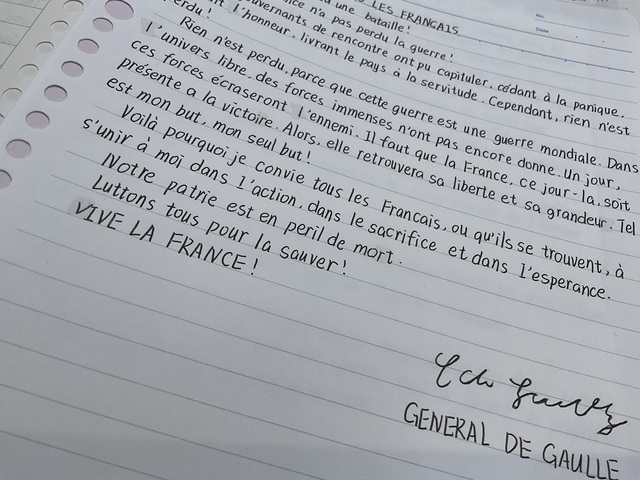 LES FRANCAIS
No.
Date
nce n'a pas perdu la guerre!
u une bataille!
ouvernants de rencontre ont pu capituler, cédant à la panique,
nt l'honneur, livrant le pays à la servitude. Cependant, rien n'est
perdu!
Rien n'est perdu, parce que cette guerre est une guerre mondiale. Dans
l'univers libre, des forces immenses n'ont pas encore donne. Un jour,
ces forces écraseront l'ennemi. Il faut que la France, ce jour-la, soit
présente a la victoire. Alors, elle retrouvera sa liberte et sa grandeur. Tel
est mon but, mon seul but!
Voilà pourquoi je convie tous les Francais, ou qu'ils se trouvent, à
s'unir à moi dans l'action, dans le sacrifice et dans l'esperance.
Notre patrie est en peril de mort.
Luttons tous pour la sauver!
VIVE LA FRANCE!
GENERAL DE GAULLE